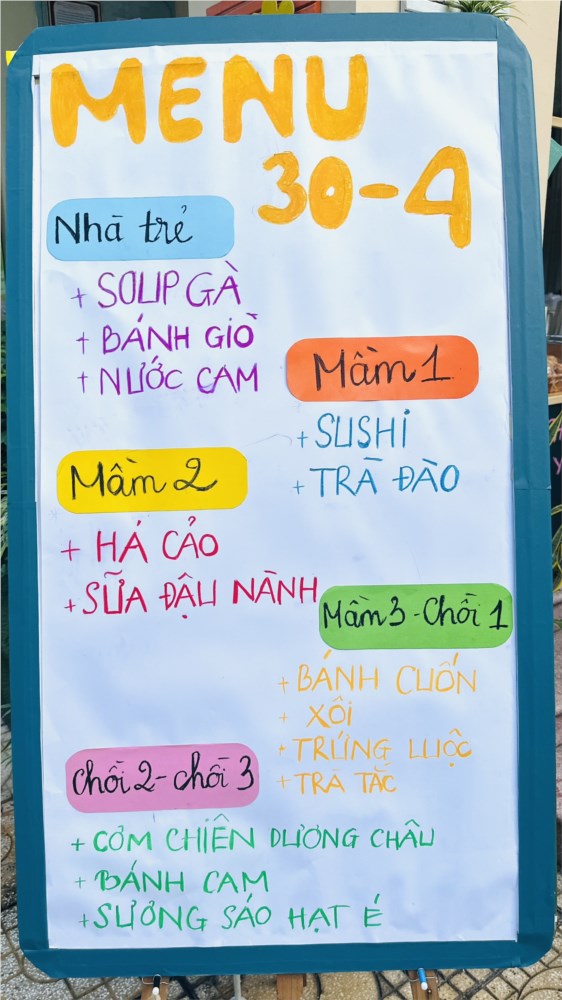 MENU
30-4
Nhà trẻ
+ SOUP GÀ
+ BÁNH GIÒ
+ NƯỚC CAM
Mầm 1
+ SUSHI
+ TRÀ ĐÀO
Mầm 2
+ HÁ CẢO
+ SỮA ĐẬU NÀNH
Mầm 3 - Chồi 1
+ BÁNH CUỐN
+ XÔI
+ TRỨNG LUỘC
+ TRÀ TẮC
Chồi 2 - Chồi 3
+ CƠM CHIÊN DƯƠNG CHÂU
+ BÁNH CAM
+ SƯƠNG SÁO HẠT É